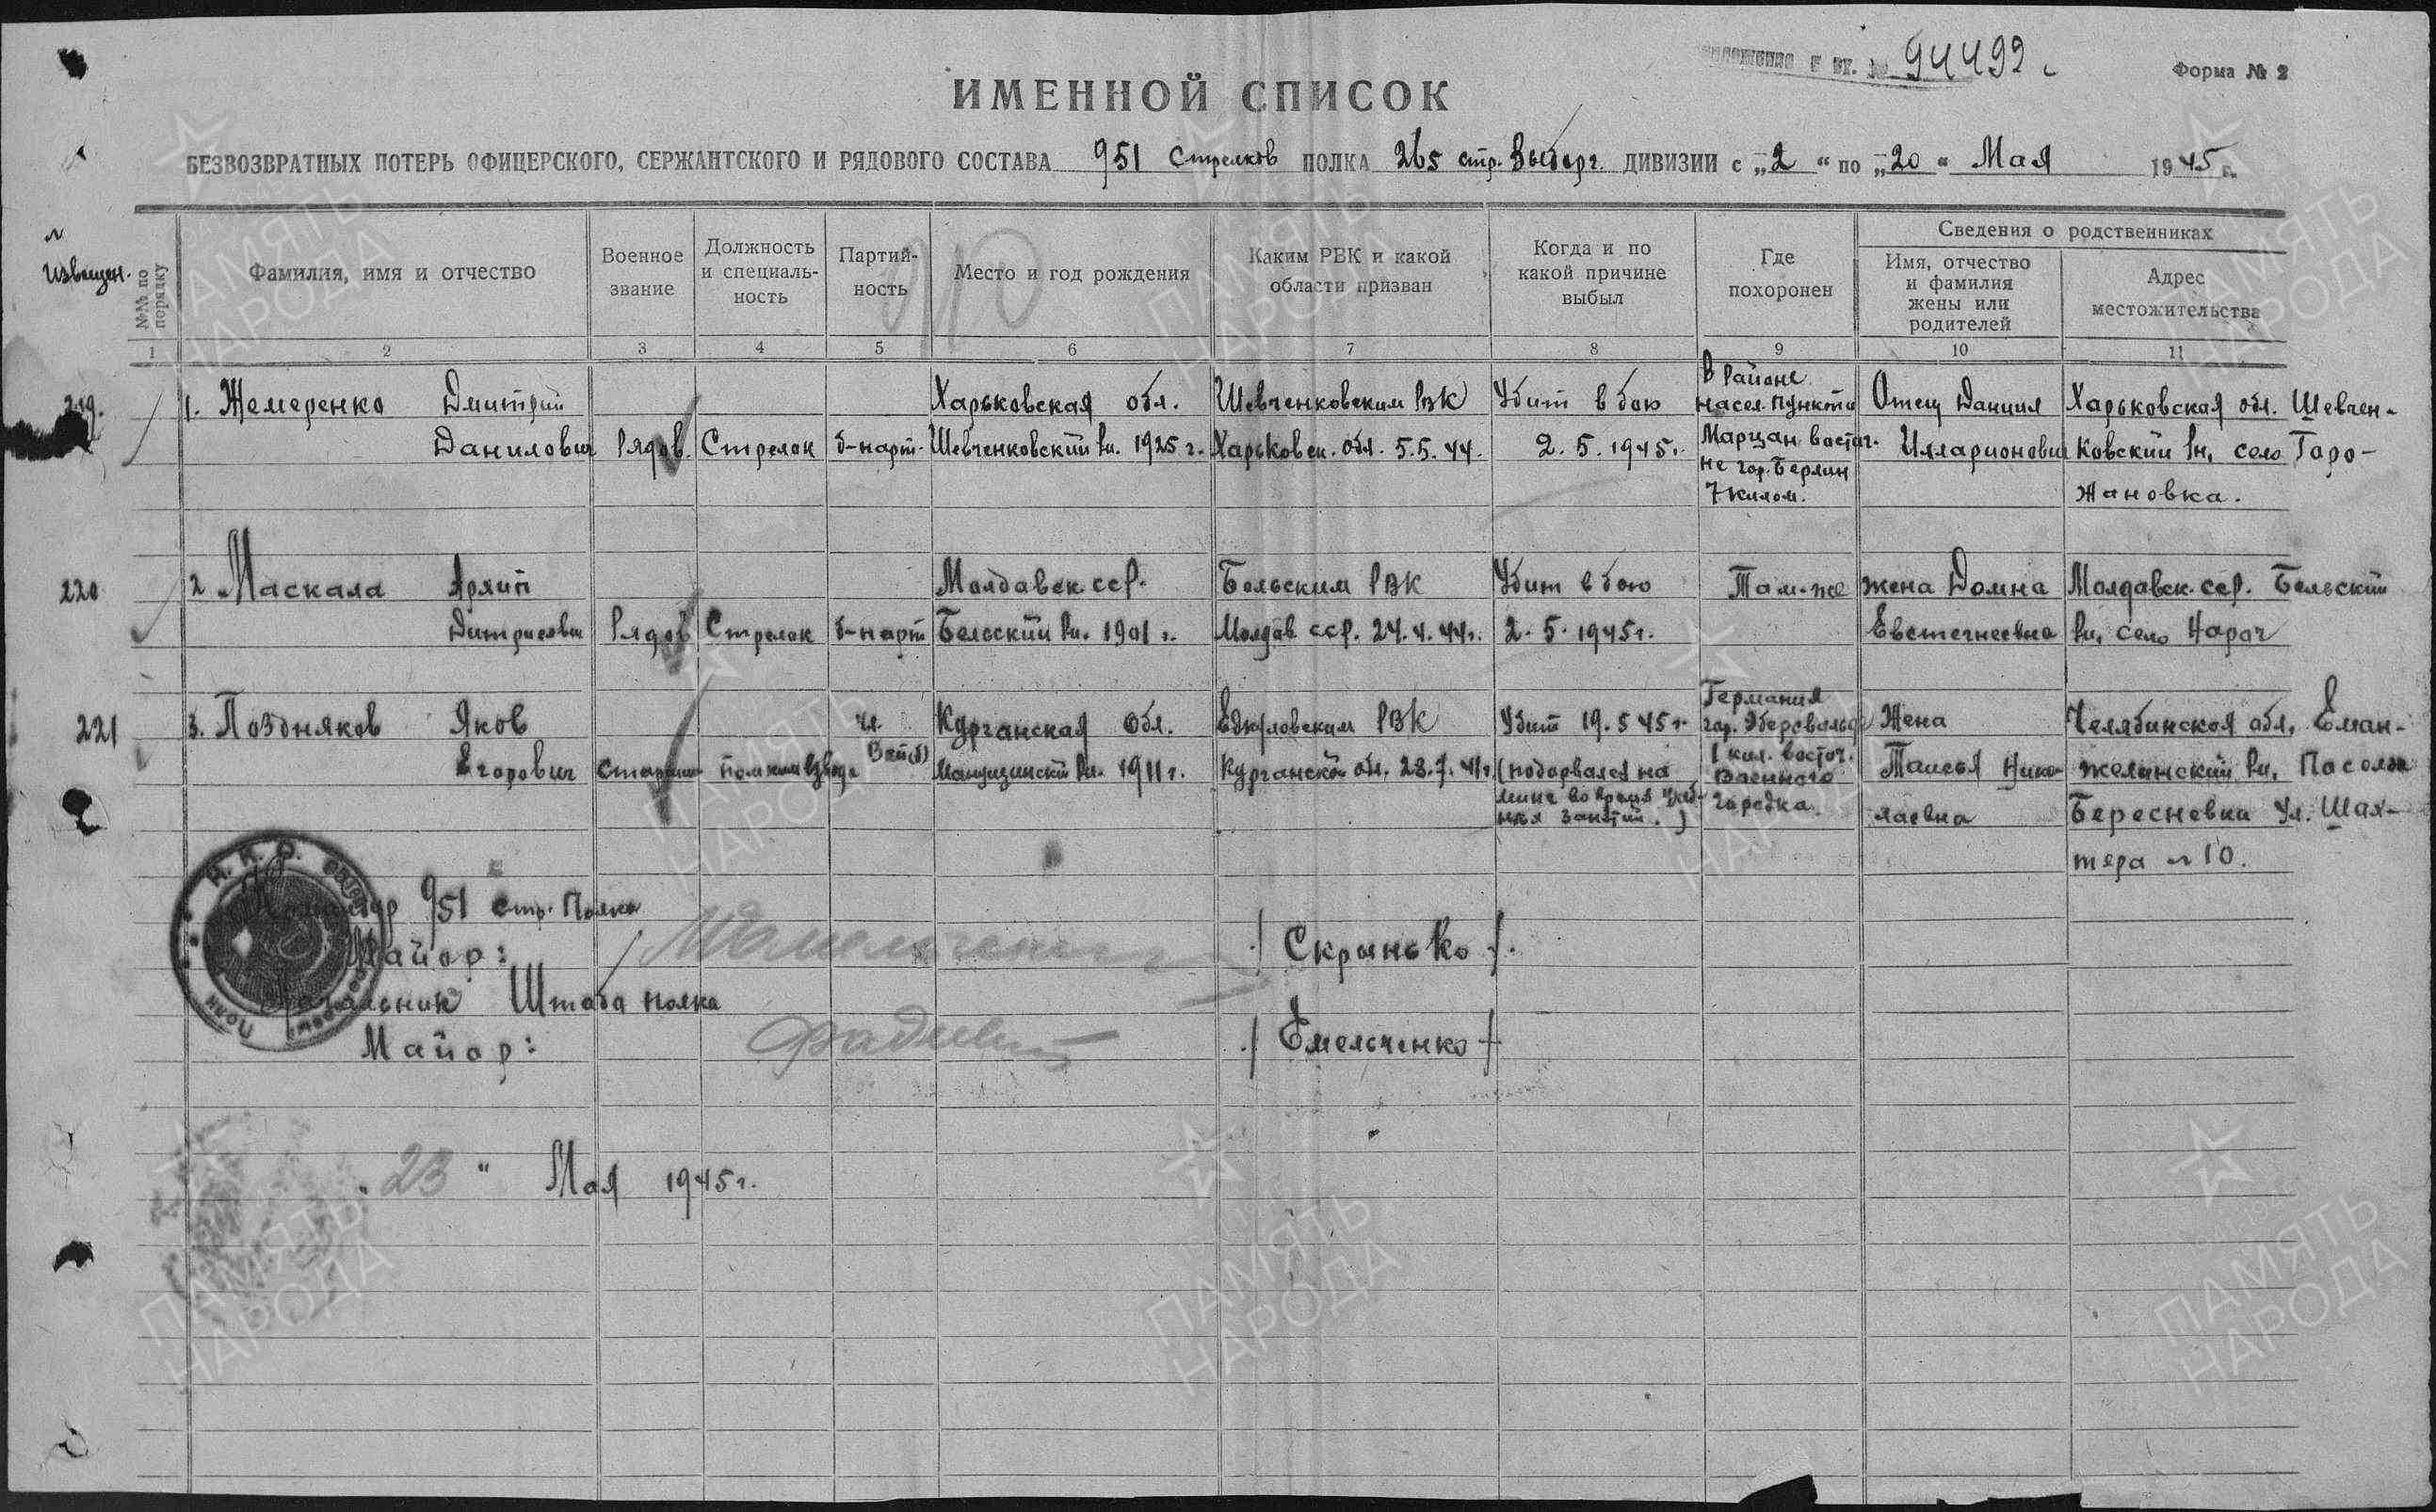 94492
Форма № 2
ИМЕННОЙ СПИСОК
БЕЗВОЗВРАТНЫХ ПОТЕРЬ ОФИЦЕРСКОГО, СЕРЖАНТСКОГО И РЯДОВОГО СОСТАВА 951 Стрелков ПОЛКА 265 стр. Выборг. ДИВИЗИИ с „2“ по „20“ Мая 1945 г.
№ извещен.
№№ по порядку
Фамилия, имя и отчество
Военное звание
Должность и специаль-ность
Партий-ность
Место и год рождения
Каким РВК и какой области призван
Когда и по какой причине выбыл
Где похоронен
Сведения о родственниках
Имя, отчество и фамилия жены или родителей
Адрес местожительства
1 2 3 4 5 6 7 8 9 10 11
219. 1. Жемеренко Дмитрий Харьковская обл. Шевченковским РВК Убит в бою В районе насел. пункта Отец Даниил Харьковская обл. Шевчен-
Данилович Рядов. Стрелок б-парт. Шевченковский рн. 1925 г. Харьковск. обл. 5.5.44. 2.5.1945г. Марцан восточ. Илларионович ковский рн, село Горо-
не гор. Берлин
7 килом. жановка.
220 2. Маскала Архип Молдавск. сср. Бельским РВК Убит в бою Там-же жена Домна Молдавск. сср. Бельский
Дмитриевич Рядов Стрелок б-парт Бельский рн. 1901 г. Молдав сср. 24.4.44г. 2.5.1945г. Евстегнеевна рн, село
221 3. Поздняков Яков чл. Курганская обл. РВК Убит 19.5 45г. Германия гор. Эберсвальде Жена Челябинская обл, Еман-
Егорович Старшин помком взвода ВКП(б) рн. 1911 г. Курганской обл. 23.7.41г (подорвался на 1 кил. восточ. военного Таисья Нико- желинский рн, Поселок
мине во время занятий.) городка. лаевна Бересневка ул. Шах-
тера № 10.
Командир 951 стр. Полка
Майор: / Скрынько /.
Начальник Штаба полка
Майор: / Емельченко /
„23“ Мая 1945г.
Н. К. О.
ПАМЯТЬ НАРОДА